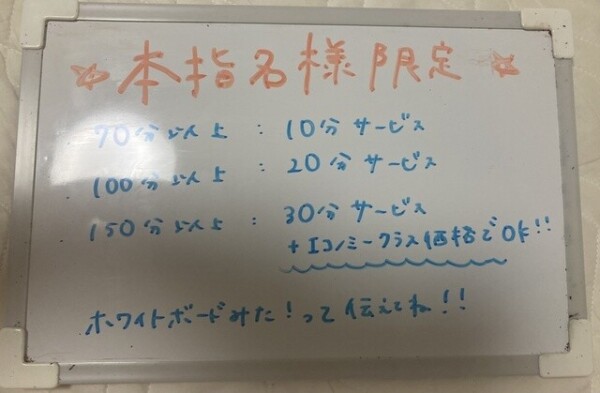 ☆本指名様限定☆
70分以上 : 10分サービス
100分以上 : 20分サービス
150分以上 : 30分サービス
+エコノミークラス価格でOK!!
ホワイトボードみた!って伝えてね!!